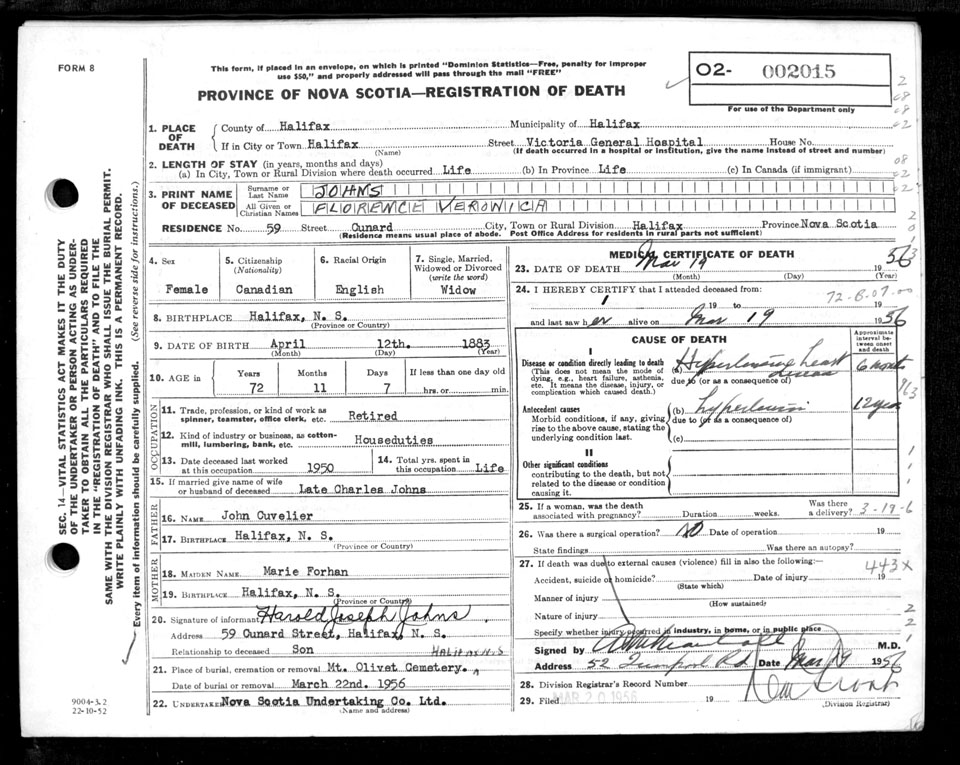 FORM 8
This form, if placed in an envelope, on which is printed "Dominion Statistics—Free, penalty for improper
use $50," and properly addressed will pass through the mail "FREE"
O2- 002015
For use of the Department only
PROVINCE OF NOVA SCOTIA—REGISTRATION OF DEATH
1. PLACE OF DEATH
County of Halifax Municipality of Halifax
If in City or Town Halifax Street Victoria General Hospital House No.
(Name) (If death occurred in a hospital or institution, give the name instead of street and number)
2. LENGTH OF STAY (in years, months and days)
(a) In City, Town or Rural Division where death occurred Life (b) In Province Life (c) In Canada (if immigrant)
3. PRINT NAME OF DECEASED
Surname or Last Name JOHNS
All Given or Christian Names FLORENCE VERONICA
RESIDENCE No. 59 Street Cunard City, Town or Rural Division Halifax Province Nova Scotia
(Residence means usual place of abode. Post Office Address for residents in rural parts not sufficient)
4. Sex
Female
5. Citizenship (Nationality)
Canadian
6. Racial Origin
English
7. Single, Married, Widowed or Divorced (write the word)
Widow
8. BIRTHPLACE Halifax, N. S.
(Province or Country)
9. DATE OF BIRTH April 12th. 1883
(Month) (Day) (Year)
10. AGE in Years Months Days If less than one day old
72 11 7 hrs. or min.
OCCUPATION
11. Trade, profession, or kind of work as spinner, teamster, office clerk, etc. Retired
12. Kind of industry or business, as cotton-mill, lumbering, bank, etc. Houseduties
13. Date deceased last worked at this occupation 1950
14. Total yrs. spent in this occupation Life
15. If married give name of wife or husband of deceased Late Charles Johns
FATHER
16. NAME John Cuvelier
17. BIRTHPLACE Halifax, N. S.
(Province or Country)
MOTHER
18. MAIDEN NAME Marie Forhan
19. BIRTHPLACE Halifax, N. S.
(Province or Country)
20. Signature of informant Harold Joseph Johns
Address 59 Cunard Street, Halifax, N. S.
Relationship to deceased Son HALIFAX N.S
21. Place of burial, cremation or removal Mt. Olivet Cemetery.
Date of burial or removal March 22nd. 1956
22. UNDERTAKER Nova Scotia Undertaking Co. Ltd.
(Name and address)
MEDICAL CERTIFICATE OF DEATH
23. DATE OF DEATH Mar 19 1956
(Month) (Day) (Year)
24. I HEREBY CERTIFY that I attended deceased from:
19 to 19
72-6-07-00
and last saw her alive on Mar 19 1956
CAUSE OF DEATH
Approximate interval between onset and death
I
Disease or condition directly leading to death
(This does not mean the mode of dying, e.g., heart failure, asthenia, etc. It means the disease, injury, or complication which caused death.)
(a) heart
due to (or as a consequence of)
6 months
Antecedent causes
Morbid conditions, if any, giving rise to the above cause, stating the underlying condition last.
(b)
due to (or as a consequence of)
(c)
II
Other significant conditions
contributing to the death, but not related to the disease or condition causing it.
25. If a woman, was the death associated with pregnancy? Duration weeks. Was there a delivery? 3-19-6
26. Was there a surgical operation? No Date of operation 19
State findings Was there an autopsy?
27. If death was due to external causes (violence) fill in also the following:—
443X
Accident, suicide or homicide? Date of injury 19
(State which)
Manner of injury
(How sustained)
Nature of injury
Specify whether injury occurred in industry, in home, or in public place
Signed by M.D.
Address 52 Rd Date Mar 19 1956
28. Division Registrar's Record Number
29. Filed MAR 20 1956 19
(Division Registrar)
SEC. 14—VITAL STATISTICS ACT MAKES IT THE DUTY
OF THE UNDERTAKER OR PERSON ACTING AS UNDER-
TAKER TO OBTAIN ALL THE PARTICULARS REQUIRED
IN THE "REGISTRATION OF DEATH" AND TO FILE THE
SAME WITH THE DIVISION REGISTRAR WHO SHALL ISSUE THE BURIAL PERMIT.
WRITE PLAINLY WITH UNFADING INK. THIS IS A PERMANENT RECORD.
Every item of information should be carefully supplied. (See reverse side for instructions.)
9004-3.2
22-10-52